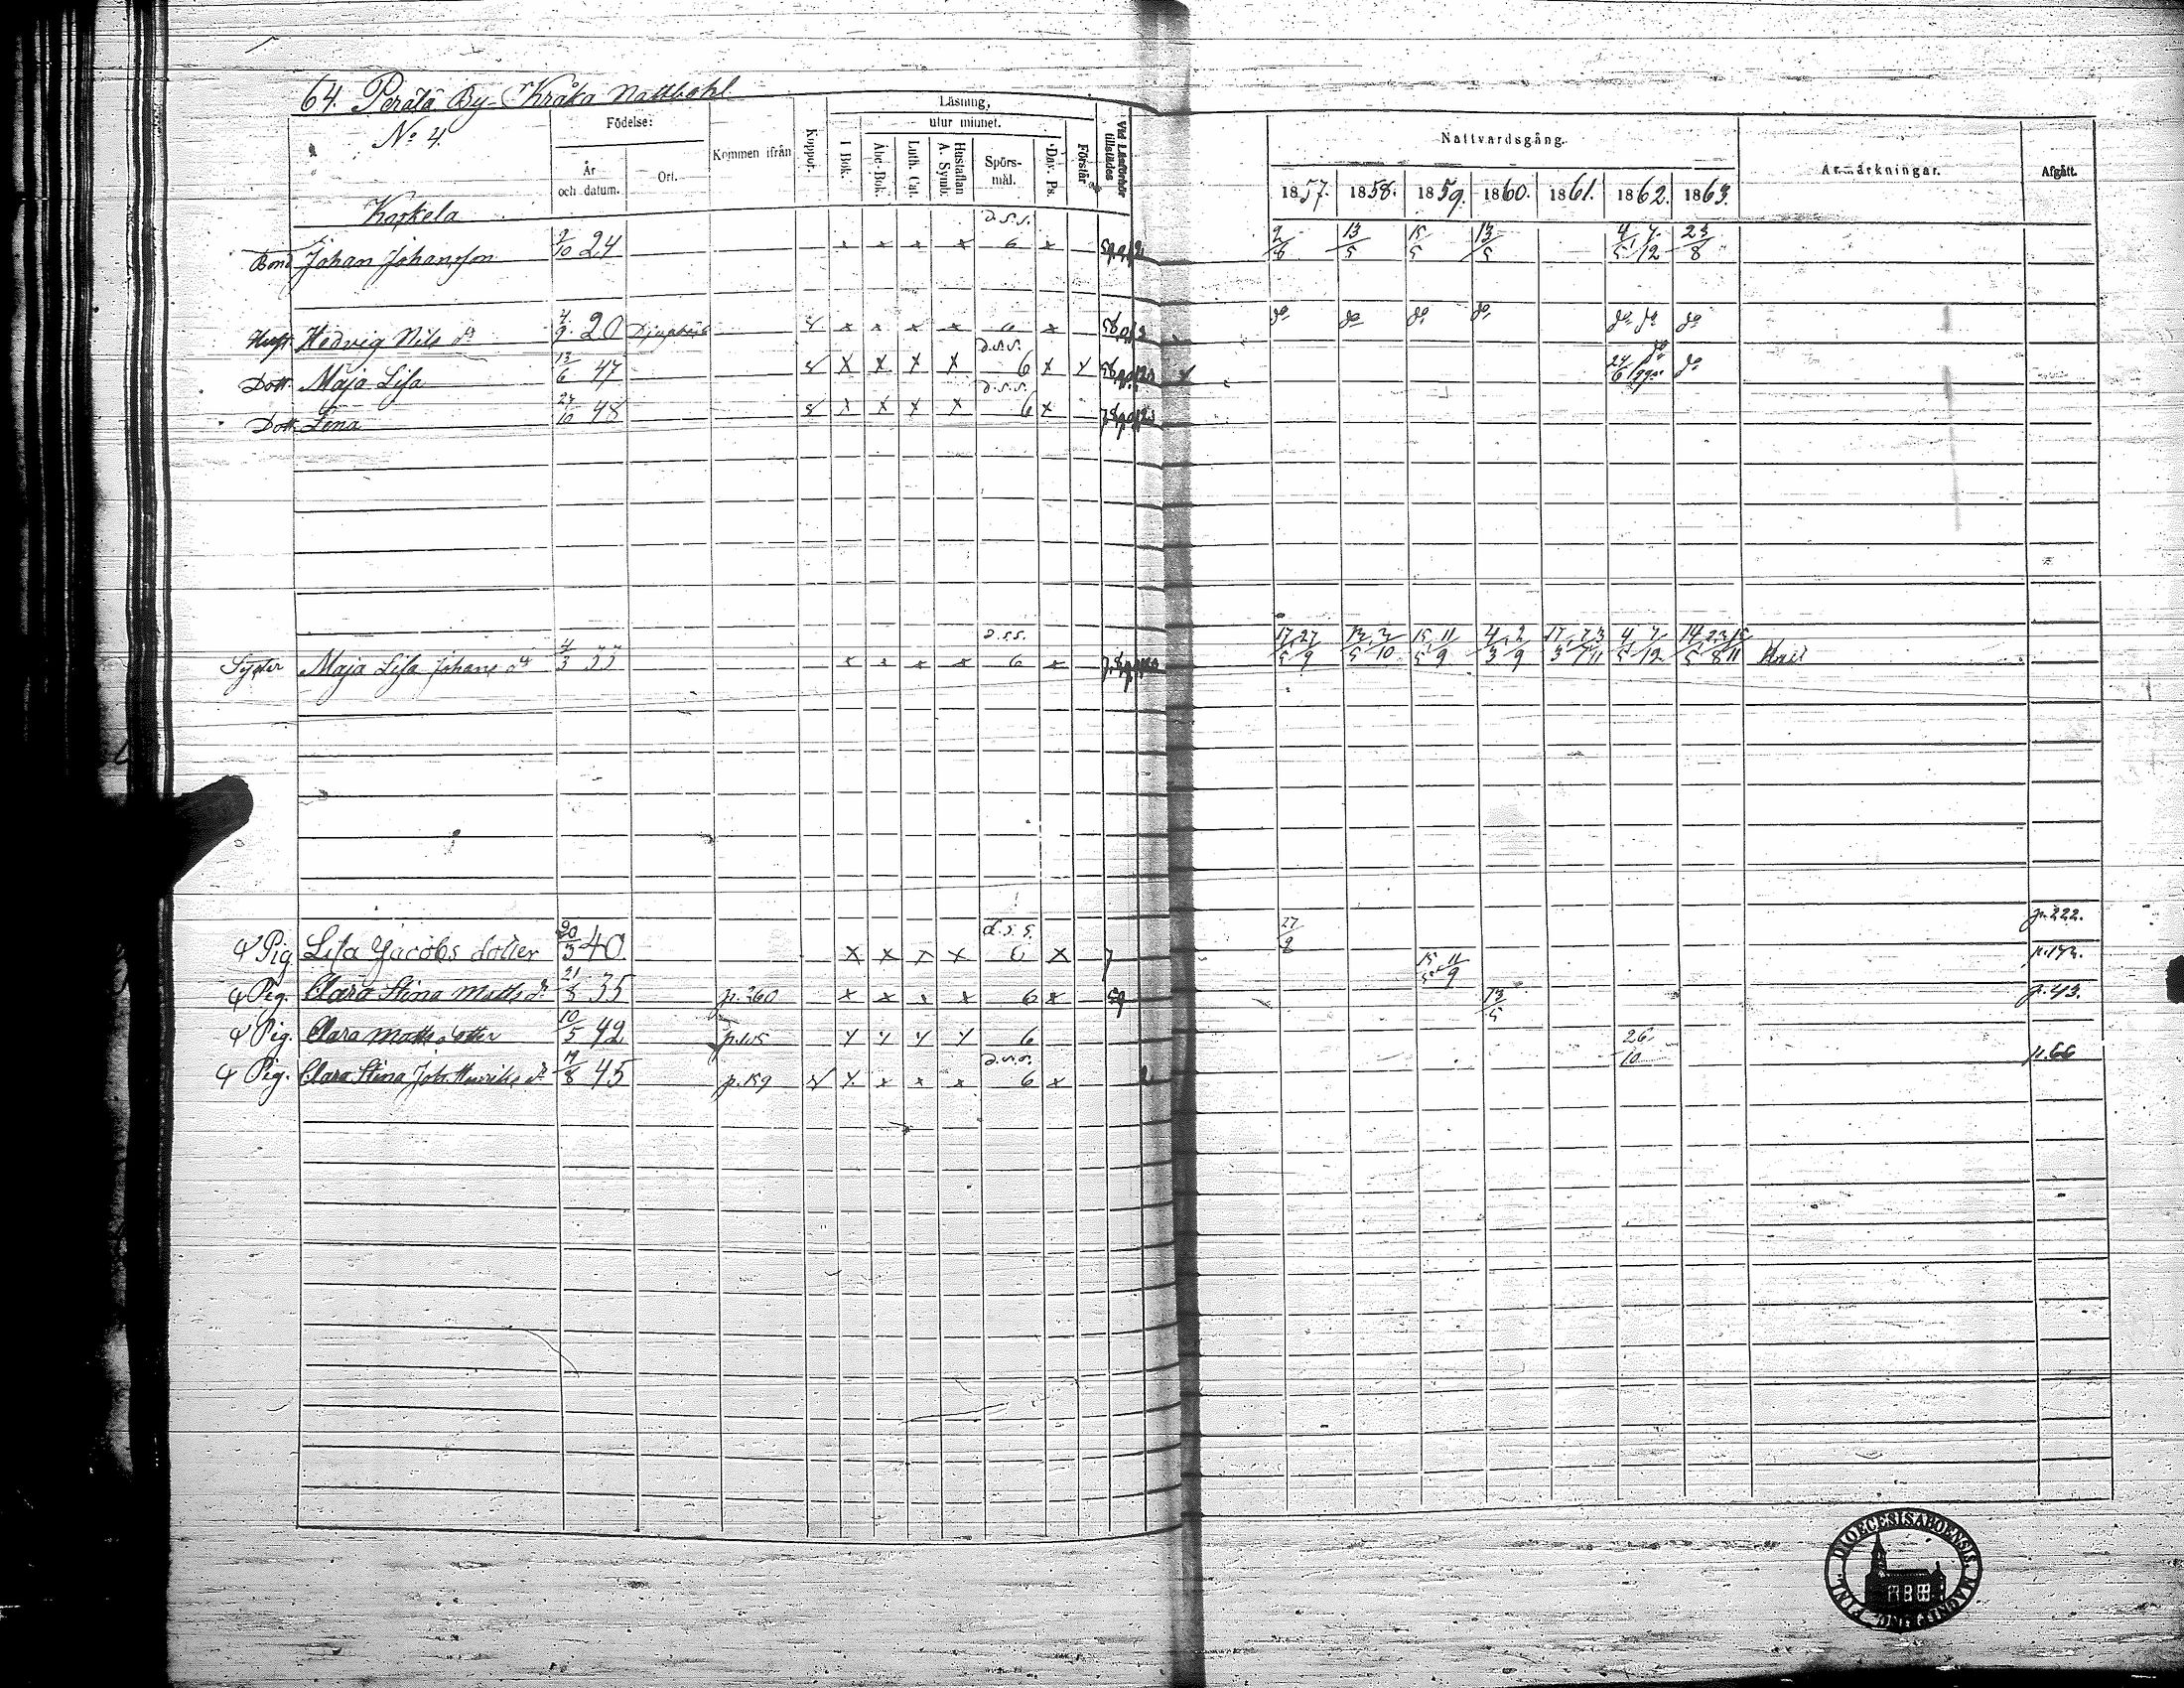 64. Perälä By Kråka Nattbohl
No 4.
Födelse:
År och datum.
Ort.
Kommen ifrån
Koppor.
Läsning,
utur minnet.
I Bok.
Abc-Bok.
Luth. Cat.
Hustaflan A. Symb.
Spörs-mål.
Dav. Ps.
Förstår
Vid Läsförhör tillstädes
Nattvardsgång.
1857. 1858. 1859. 1860. 1861. 1862. 1863.
Anmärkningar.
Afgått.
Korkela
Bond Johan Johansson 2/10 24 x x x x d.s.s. 6 x 2/6 13/5 15/5 13/5 4/5 7/12 23/8
Hust Hedvig Nils dr 4/9 20 x x x x 6 x do do do do do do do
Dott. Maja Lisa 13/6 47 x x x x d.s.s. 6 x 24/6 do do
Dott. Lena 27/10 48 x x x x d.s.s. 6 x
Syster Maja Lisa Johans dr 4/3 33 x x x x d.s.s. 6 x 17/5 27/9 13/5 3/10 15/5 11/9 4/3 2/9 4/5 7/12 14/5 23/8 15/11
Pig. Lisa Jacobs dotter 20/3 40. x x x x d.s.s. 6 x 7 27/8 p. 222.
Pig. Clara Stina Matts dr 21/8 35 p. 260 x x x x 6 x 59 15/5 11/9
Pig. Clara Matts dotter 10/5 42 6 13/5 p. 43.
Pig. Clara Stina Joh. Henriks dr 19/8 45 p. 159 x x x x 6 x 26/10 p. 66
DIOECESIS ABOENSIS. MAGNI DUC. FINL.